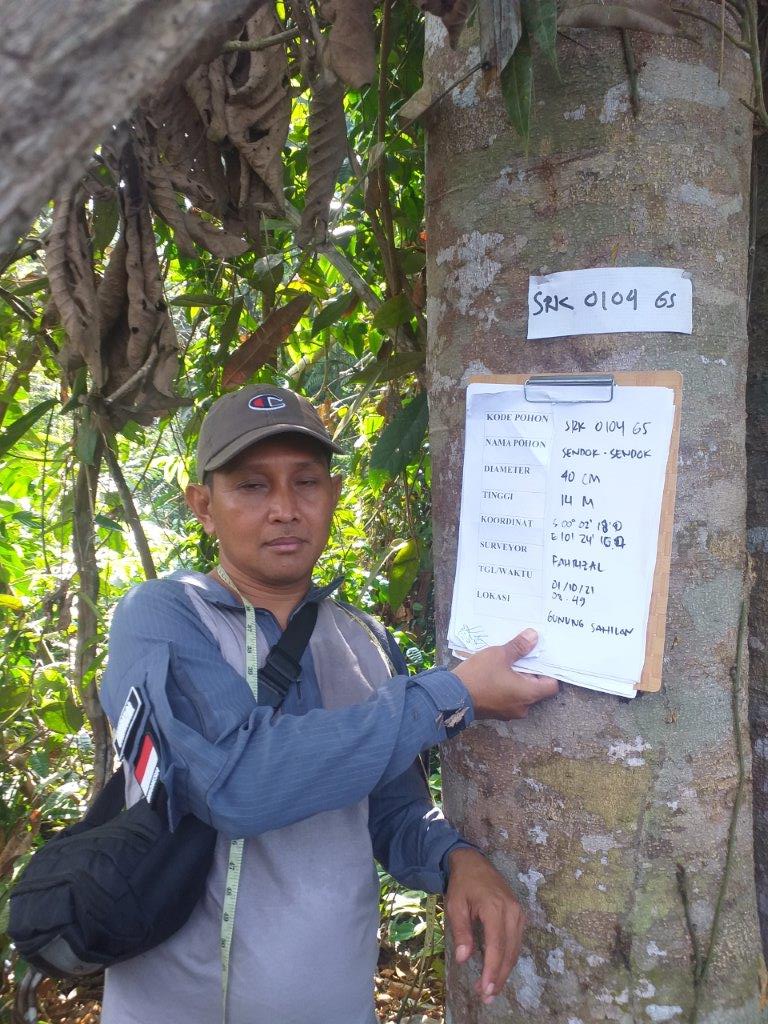 SRK 0104 GS
KODE POHON SRK 0104 GS
NAMA POHON SENDOK - SENDOK
DIAMETER 40 CM
TINGGI 14 M
KOORDINAT S 00° 02'
E 101° 24'
SURVEYOR FAHRIZAL
TGL/WAKTU 01/10/21
LOKASI GUNUNG SAHILAN